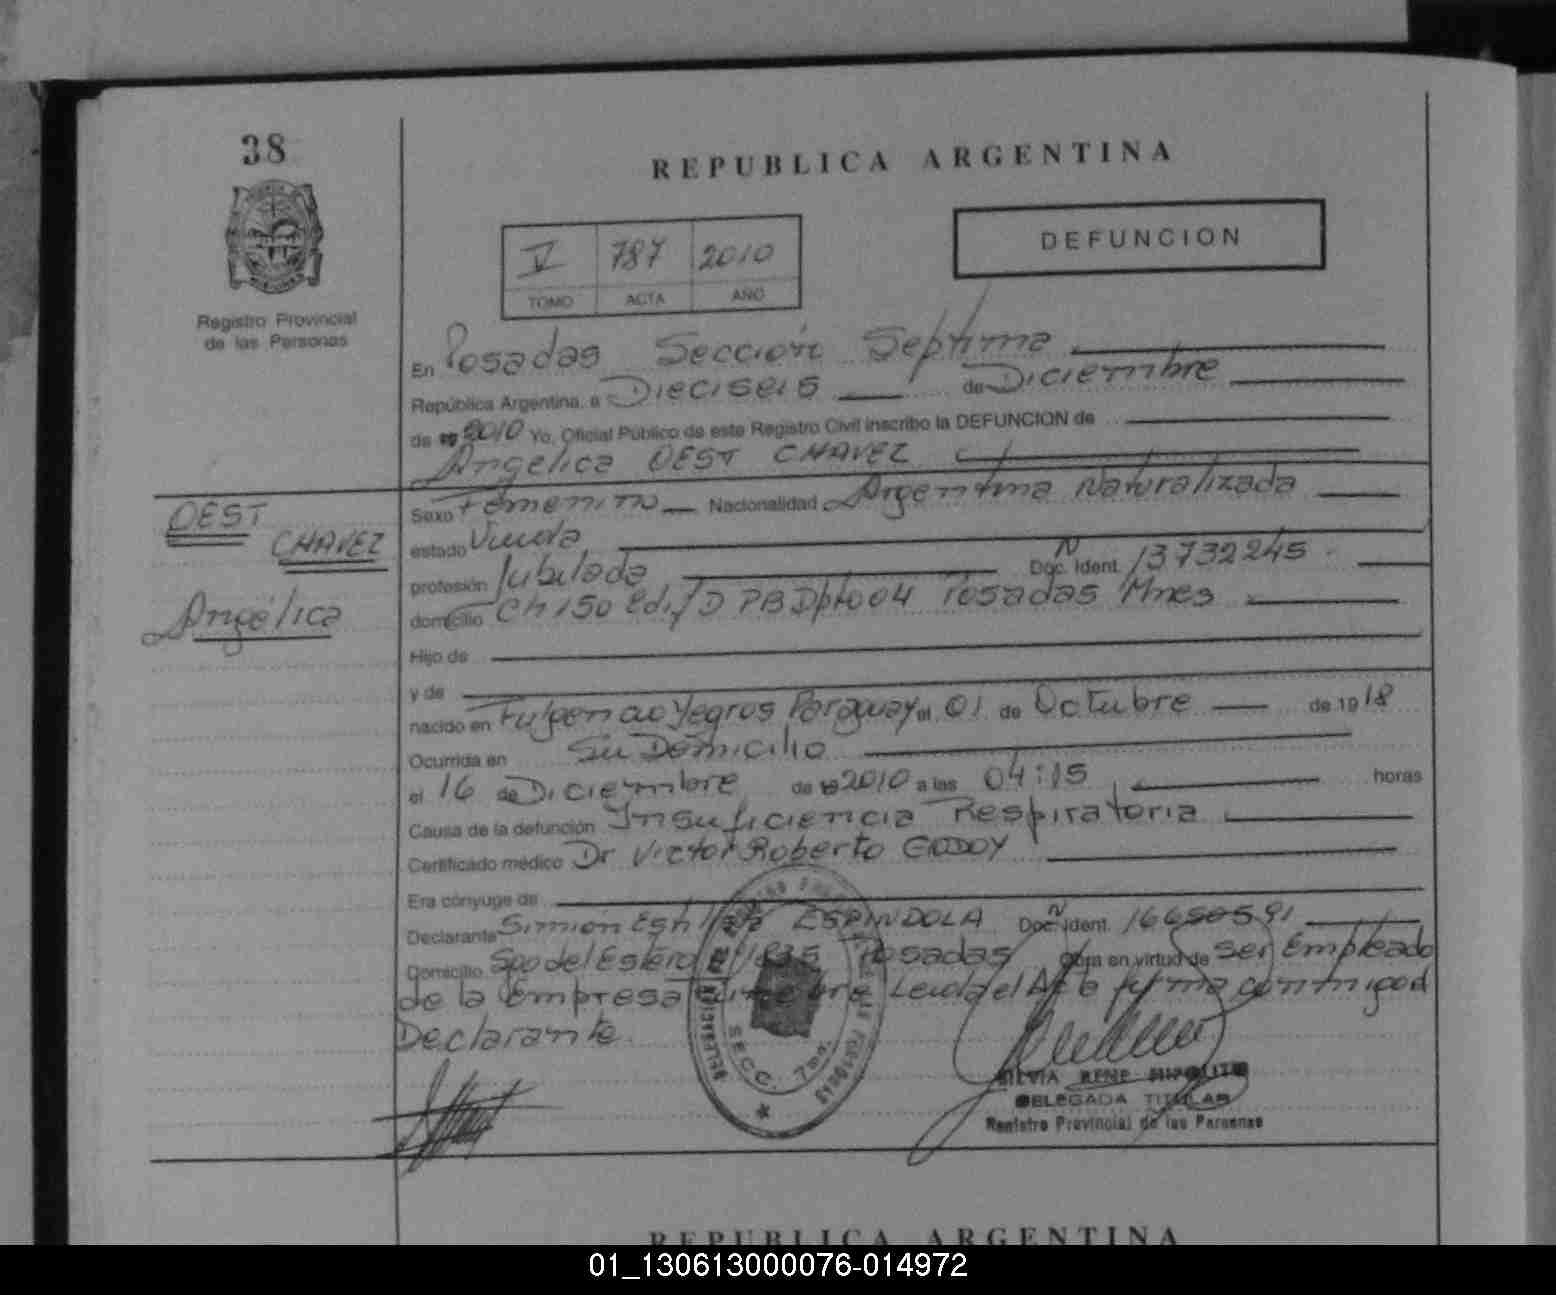 38
REPUBLICA ARGENTINA
DEFUNCION
V 787 2010
TOMO ACTA AÑO
Registro Provincial
de las Personas
En Posadas Sección Septima
República Argentina, a Dieciseis de Diciembre
de 2010 Yo, Oficial Público de este Registro Civil inscribo la DEFUNCION de
Angélica OEST CHAVEZ
OEST
CHAVEZ
Angélica
Sexo Femenino Nacionalidad Argentina Naturalizada
estado Viuda
profesión Jubilada Doc. Ident. N 13732245
domicilio Ch 150 edif D PB Dpto 04 Posadas Mnes
Hijo de
y de
nacido en Fulgencio Yegros Paraguay el 01 de Octubre de 1918
Ocurrida en Su Domicilio
el 16 de Diciembre de 2010 a las 04:15 horas
Causa de la defunción Insuficiencia Respiratoria
Certificado médico Dr Victor Roberto GODOY
Era cónyuge de
Declarante Simión ESPINDOLA Doc. Ident. N 16650591
Domicilio Sgo del Estero 1835 Posadas Obra en virtud de Ser Empleado
de la Empresa Leida el Acta firma conmigo el
Declarante.
DELEGACION
SECC. 7ma.
POSADAS
SILVIA RENE HIPOLITO
DELEGADA TITULAR
Registro Provincial de las Personas
REPUBLICA ARGENTINA
01_130613000076-014972